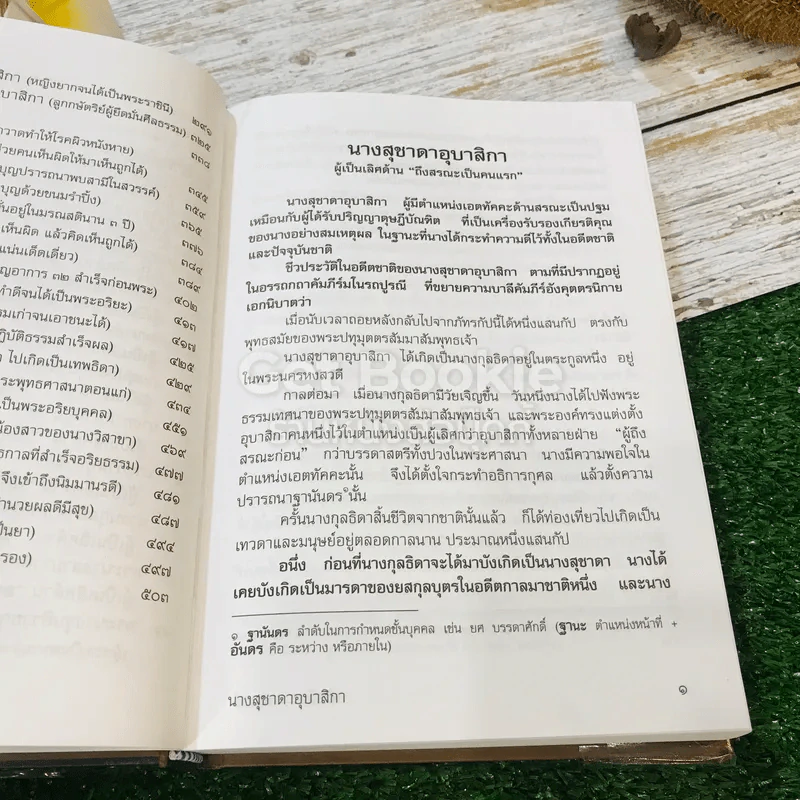 สิกา (หญิงยากจนได้เป็นพระราชินี)
๒๙๑
บาสิกา (ลูกกษัตริย์ผู้ยึดมั่นศีลธรรม)
๓๒๕
วาดทำให้โรคผิวหนังหาย)
๓๓๘
วยคนเห็นผิดให้มาเห็นถูกได้)
บุญปรารถนาพบสามีในสวรรค์)
๓๔๕
บุญด้วยขนมรำปิ้ง)
๓๕๙
ั่นอยู่ในมรณสตินาน ๓ ปี)
๓๖๕
เห็นผิด แล้วคิดเห็นถูกได้)
๓๗๖
แน่นเด็ดเดี่ยว)
๓๘๔
ญอาการ ๓๒ สำเร็จก่อนพระ)
๓๘๙
ทำดีจนได้เป็นพระอริยะ)
๔๐๒
รมเก่าจนเอาชนะได้)
๔๑๓
ฏิบัติธรรมสำเร็จผล)
๔๑๗
า ไปเกิดเป็นเทพธิดา)
๔๒๕
ระพุทธศาสนาตอนแก่)
๔๒๙
เป็นพระอริยบุคคล)
๔๓๔
น้องสาวของนางวิสาขา)
๔๕๑
ธิกาลที่สำเร็จอริยธรรม)
๔๖๙
จึงเข้าถึงนิมมานรดี)
๔๗๗
านวยผลดีมีสุข)
๔๘๑
ป็นยา)
๔๘๗
รอง)
๔๙๔
๔๙๗
๕๐๓
นางสุชาดาอุบาสิกา
ผู้เป็นเลิศด้าน “ถึงสรณะเป็นคนแรก”
นางสุชาดาอุบาสิกา ผู้มีตำแหน่งเอตทัคคะด้านสรณะเป็นปฐม
เหมือนกับผู้ได้รับปริญญาดุษฎีบัณฑิต ที่เป็นเครื่องรับรองเกียรติคุณ
ของนางอย่างสมเหตุผล ในฐานะที่นางได้กระทำความดีไว้ทั้งในอดีตชาติ
และปัจจุบันชาติ
ชีวประวัติในอดีตชาติของนางสุชาดาอุบาสิกา ตามที่มีปรากฏอยู่
ในอรรถกถาคัมภีร์มโนรถปูรณี ที่ขยายความบาลีคัมภีร์อังคุตตรนิกาย
เอกนิบาตว่า
เมื่อนับเวลาถอยหลังกลับไปจากภัทรกัปนี้ได้หนึ่งแสนกัป ตรงกับ
พุทธสมัยของพระปทุมุตตรสัมมาสัมพุทธเจ้า
นางสุชาดาอุบาสิกา ได้เกิดเป็นนางกุลธิดาอยู่ในตระกูลหนึ่ง อยู่
ในพระนครหงสวดี
กาลต่อมา เมื่อนางกุลธิดามีวัยเจริญขึ้น วันหนึ่งนางได้ไปฟังพระ
ธรรมเทศนาของพระปทุมุตตรสัมมาสัมพุทธเจ้า และพระองค์ทรงแต่งตั้ง
อุบาสิกาคนหนึ่งไว้ในตำแหน่งเป็นผู้เลิศกว่าอุบาสิกาทั้งหลายฝ่าย “ผู้ถึง
สรณะก่อน” กว่าบรรดาสตรีทั้งปวงในพระศาสนา นางมีความพอใจใน
ตำแหน่งเอตทัคคะนั้น จึงได้ตั้งใจกระทำอธิการกุศล แล้วตั้งความ
ปรารถนาฐานันดร๑นั้น
ครั้นนางกุลธิดาสิ้นชีวิตจากชาตินั้นแล้ว ก็ได้ท่องเที่ยวไปเกิดเป็น
เทวดาและมนุษย์อยู่ตลอดกาลนาน ประมาณหนึ่งแสนกัป
อนึ่ง ก่อนที่นางกุลธิดาจะได้มาบังเกิดเป็นนางสุชาดา นางได้
เคยบังเกิดเป็นมารดาของยสกุลบุตรในอดีตกาลมาชาติหนึ่ง และนาง
๑ ฐานันดร ลำดับในการกำหนดชั้นบุคคล เช่น ยศ บรรดาศักดิ์ (ฐานะ ตำแหน่งหน้าที่ +
อันดร คือ ระหว่าง หรือภายใน)
นางสุชาดาอุบาสิกา
๑
Get Bookie